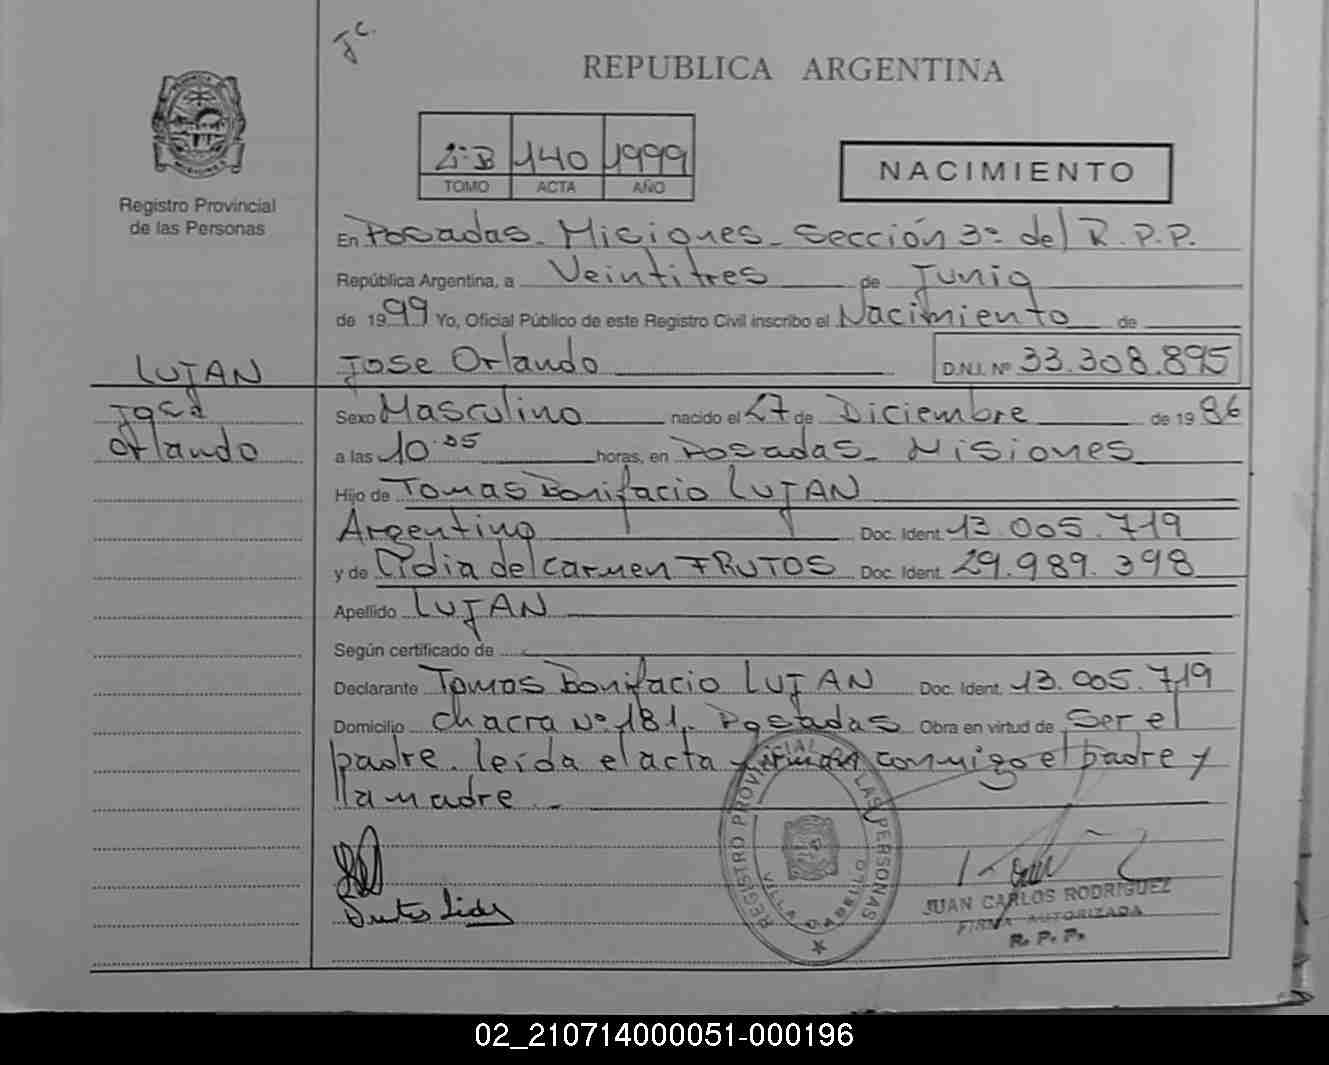 Jc.
REPUBLICA ARGENTINA
2º B 140 1999
TOMO ACTA AÑO
NACIMIENTO
Registro Provincial
de las Personas
En Posadas - Misiones - Sección 3º del R.P.P.
República Argentina, a Veintitres de Junio
de 1999 Yo, Oficial Público de este Registro Civil inscribo el Nacimiento de
LUJAN
Jose Orlando D.N.I. Nº 33.308.895
José
Orlando
Sexo Masculino nacido el 27 de Diciembre de 1986
a las 10.05 horas, en Posadas - Misiones
Hijo de Tomas Bonifacio LUJAN
Argentino Doc. Ident. 13.005.719
y de Lidia del Carmen FRUTOS Doc. Ident. 29.989.398
Apellido LUJAN
Según certificado de
Declarante Tomas Bonifacio LUJAN Doc. Ident. 13.005.719
Domicilio chacra Nº 181 - Posadas Obra en virtud de Ser el
padre. leída el acta firman conmigo el padre y
la madre. -
REGISTRO PROVINCIAL DE LAS PERSONAS
VILLA CABELLO
JUAN CARLOS RODRIGUEZ
FIRMA AUTORIZADA
R. P. P.
02_210714000051-000196